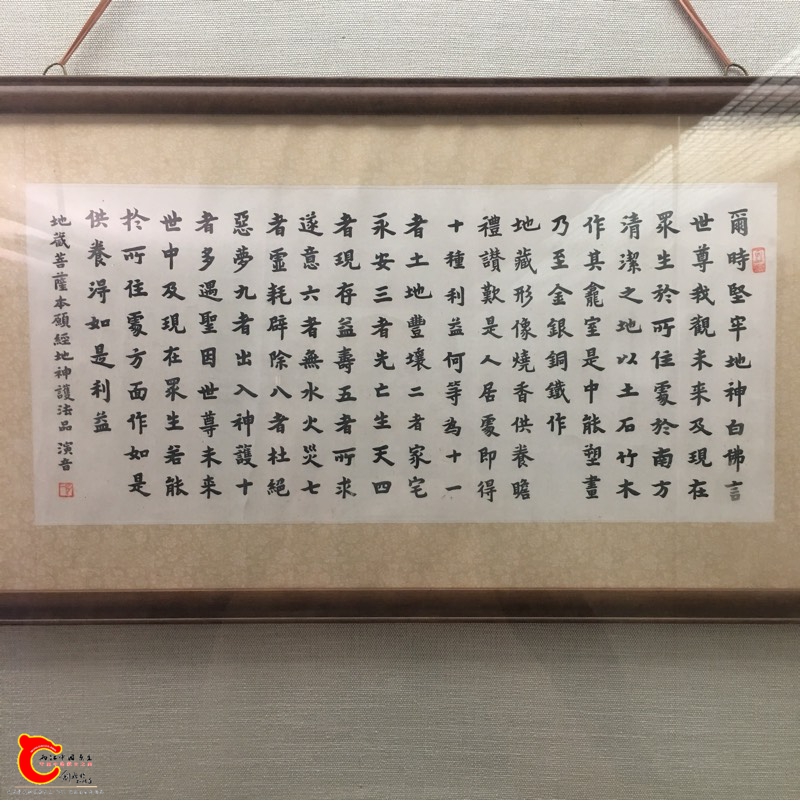 爾時堅牢地神白佛言
世尊我觀未来及現在
眾生於所住處於南方
清潔之地以土石竹木
作其龕室是中能塑畫
乃至金銀銅鐵作
地藏形像燒香供養瞻
禮讃歎是人居處即得
十種利益何等為十一
者土地豐壤二者家宅
永安三者先亡生天四
者現存益壽五者所求
遂意六者無水火災七
者虛耗辟除八者杜絕
惡夢九者出入神護十
者多遇聖因世尊未来
世中及現在眾生若能
於所住處方面作如是
供養得如是利益
地藏菩薩本願經地神護法品 演音